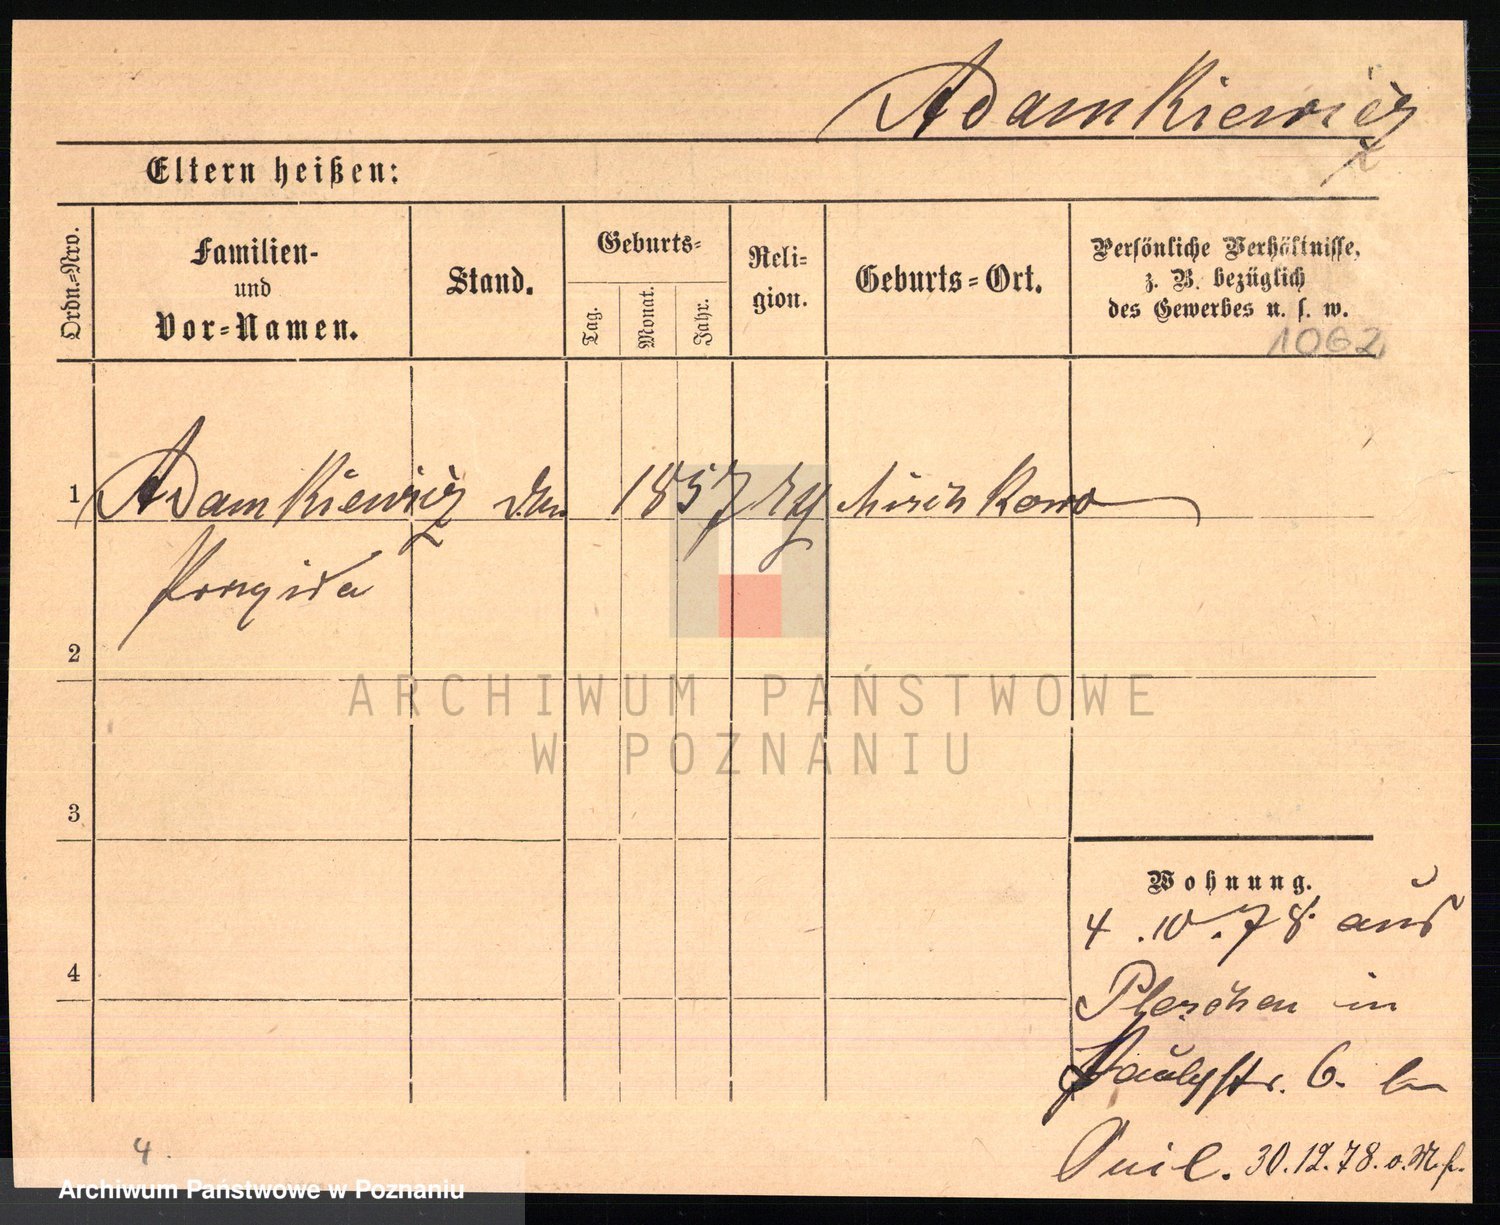 Adamkiewicz
Eltern heißen:
Ordn.-Nro.
Familien-
und
Vor-Namen.
Stand.
Geburts-
Tag.
Monat.
Jahr.
Reli-
gion.
Geburts-Ort.
Persönliche Verhältnisse,
z. B. bezüglich
des Gewerbes u. s. w.
1062
1 Adamkiewicz 1857
2
3
4
Wohnung.
4.10.78 aus
Pleschen in
Paulystr. 6.
30.12.78. o.
ARCHIWUM PAŃSTWOWE
W POZNANIU
4
Archiwum Państwowe w Poznaniu